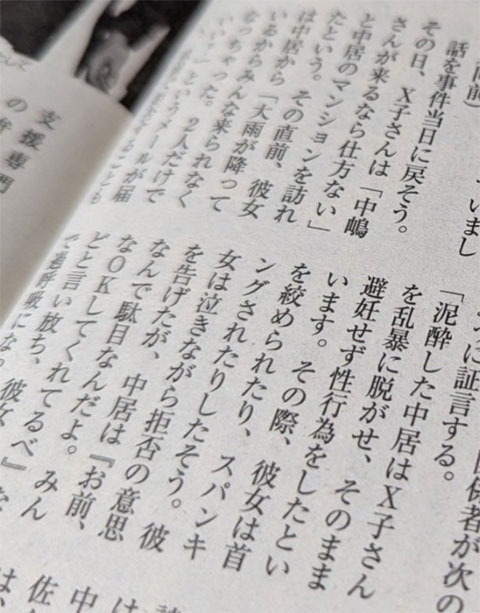 いまし
同前）
話を事件当日に戻そう。
その日、X子さんは「中嶋
さんが来るなら仕方ない」
と中居のマンションを訪れ
たという。その直前、彼女
は中居から「大雨が降って
いるからみんな来られなく
なっちゃった。2人だけで
というメールが届
ることも
関係者が次の
に証言する。
「泥酔した中居はX子さん
を乱暴に脱がせ、そのまま
避妊せず性行為をしたとい
います。その際、彼女は首
を絞められたり、スパンキ
ングされたりしたそう。彼
女は泣きながら拒否の意思
を告げたが、中居は『お前、
なんで駄目なんだよ。みん
なOKしてくれてるべ』な
どと言い放ち、彼女
過呼吸にな
支援専門
の